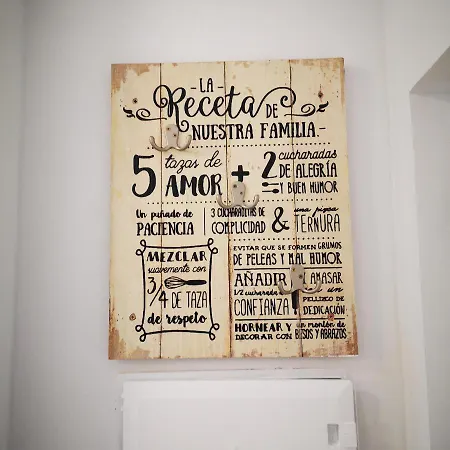 -LA-
Receta DE
NUESTRA FAMILIA.-
5 tazas de AMOR + 2 cucharadas DE ALEGRÍA Y BUEN HUMOR
Un puñado de PACIENCIA
3 CUCHARADITAS DE COMPLICIDAD & una pizca TERNURA
MEZCLAR
suavemente con
3/4 DE TAZA
de respeto
EVITAR QUE SE FORMEN GRUMOS
DE PELEAS Y MAL HUMOR
AÑADIR
1/2 cucharada
CONFIANZA
AMASAR
un
PELLIZCO DE
DEDICACIÓN
HORNEAR Y
DECORAR CON
un montón de
BESOS Y ABRAZOS